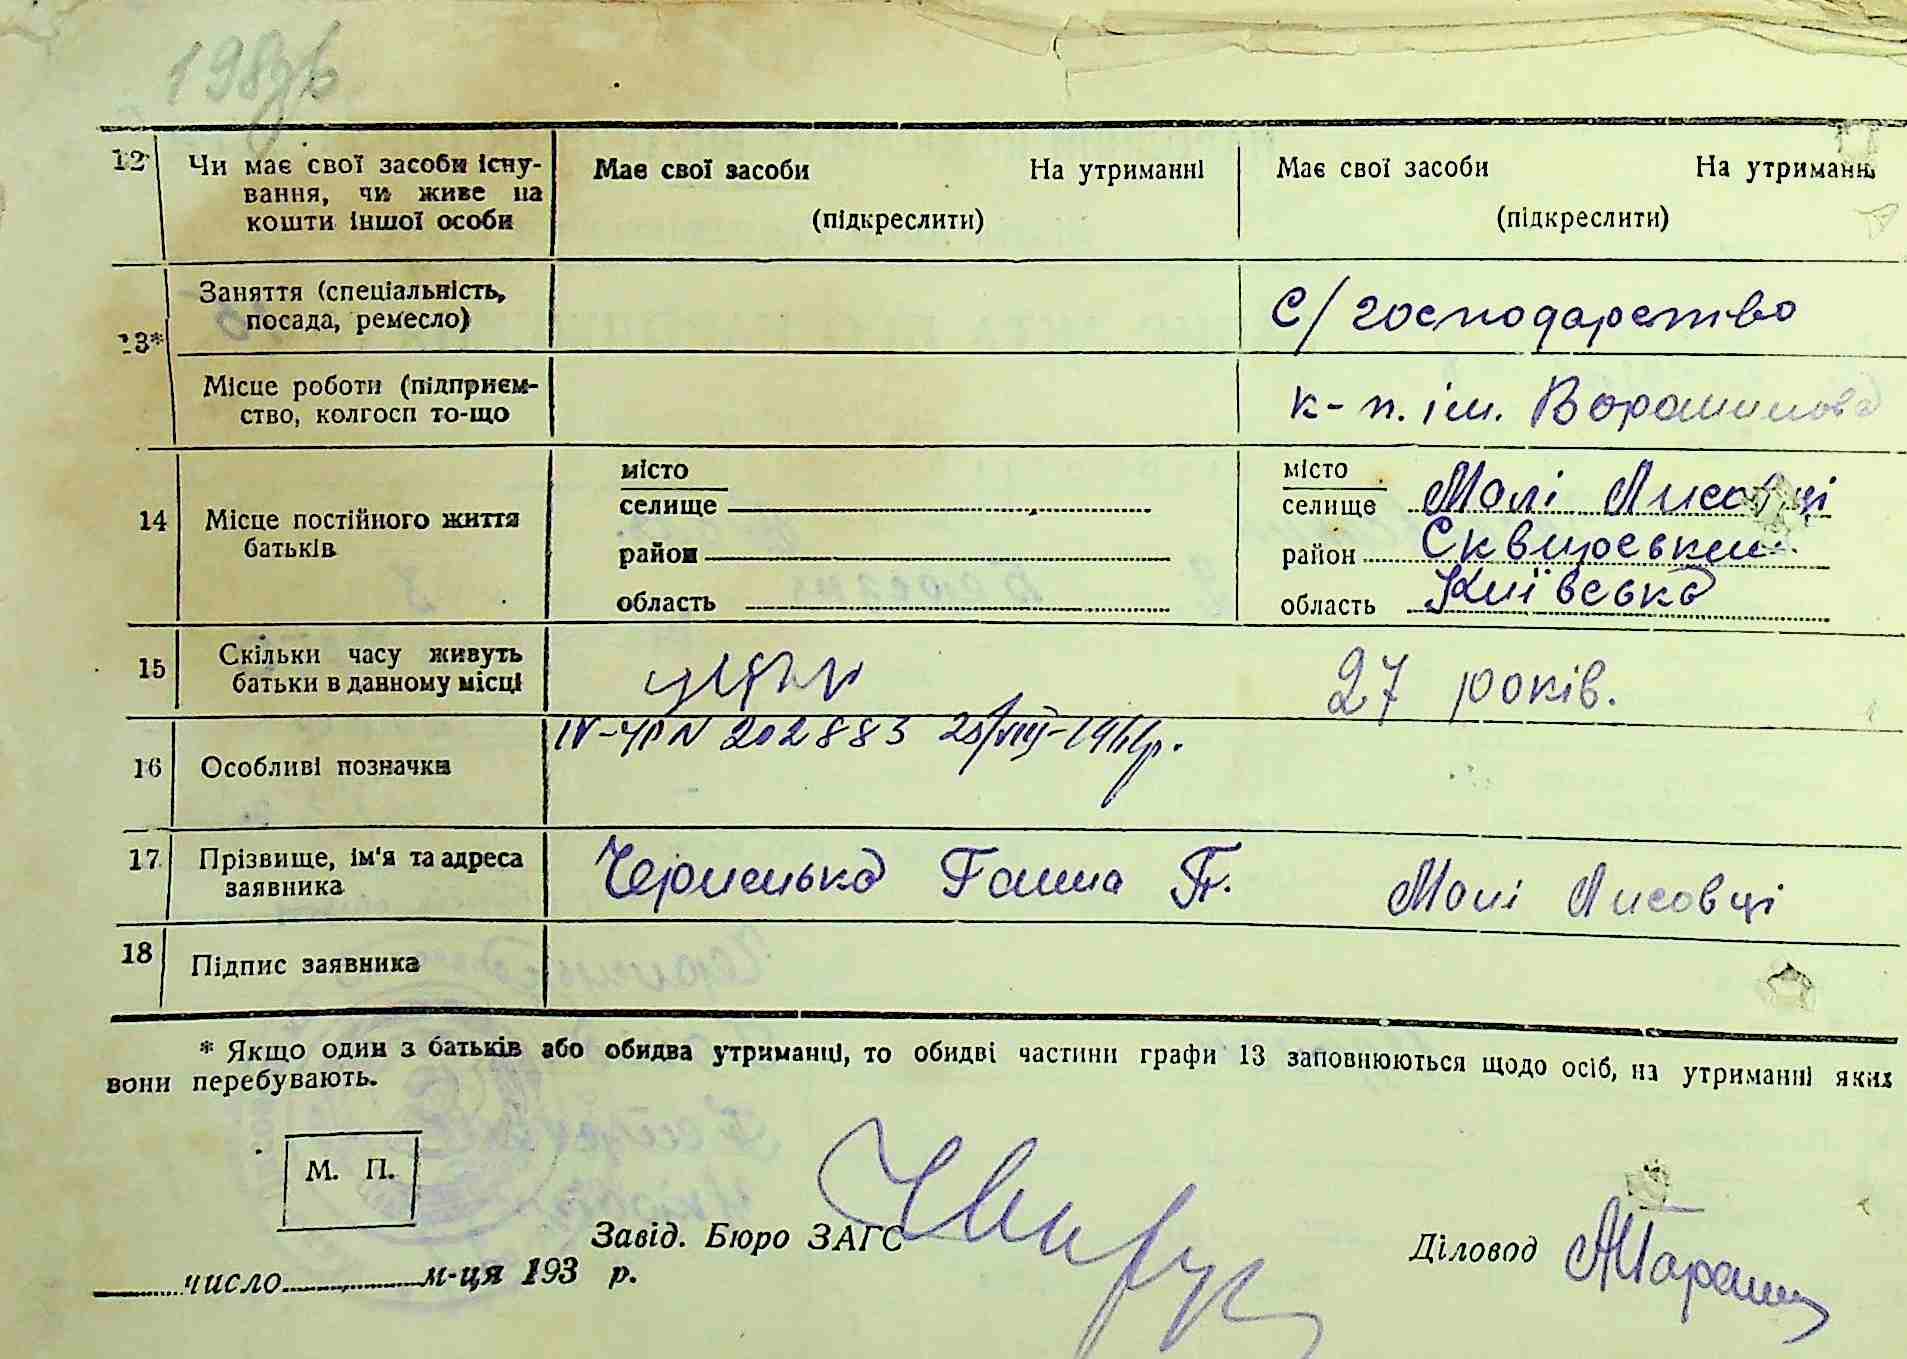 198зв
12 Чи має свої засоби існу-
вання, чи живе на
кошти іншої особи
Має свої засоби На утриманні
(підкреслити)
Має свої засоби На утриманні
(підкреслити)
13*
Заняття (спеціальність,
посада, ремесло)
С/господарство
Місце роботи (підприєм-
ство, колгосп то-що
к-п. ім. Ворошилова
14 Місце постійного життя
батьків
місто
селище
район
область
місто
селище Малі Лисовці
район Сквирський
область Київська
15 Скільки часу живуть
батьки в данному місці
27 років.
16 Особливі позначки
IV-УР N 202883 /VIII-
17 Прізвище, ім'я та адреса
заявника
Черненька Ганна П. Малі Лисовці
18 Підпис заявника
* Якщо один з батьків або обидва утриманці, то обидві частини графи 13 заповнюються щодо осіб, на утриманні яких
вони перебувають.
М. П.
Завід. Бюро ЗАГС
Діловод
число м-ця 193 р.